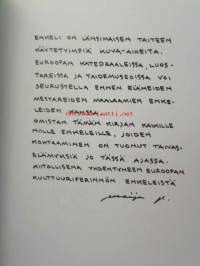 ENKELI ON LÄNSIMAISEN TAITEEN
KÄYTETYIMPIÄ KUVA-AIHEITA.
EUROOPAN KATEDRAALEISSA, LUOS-
TAREISSA JA TAIDEMUSEOISSA VOI
SEURUSTELLA ENNEN ELÄNEIDEN
MESTAREIDEN MAALAAMIEN ENKE-
LEIDEN KANSSA.
OMISTAN TÄMÄN KIRJAN KAIKILLE
NIILLE ENKELEILLE, JOIDEN
KOHTAAMINEN ON TUONUT TAIVAS-
ELÄMYKSIÄ JO TÄSSÄ AJASSA.
KIITOLLISENA YHDENTYNEEN EUROOPAN
KULTTUURIPERINNÖN ENKELEISTÄ